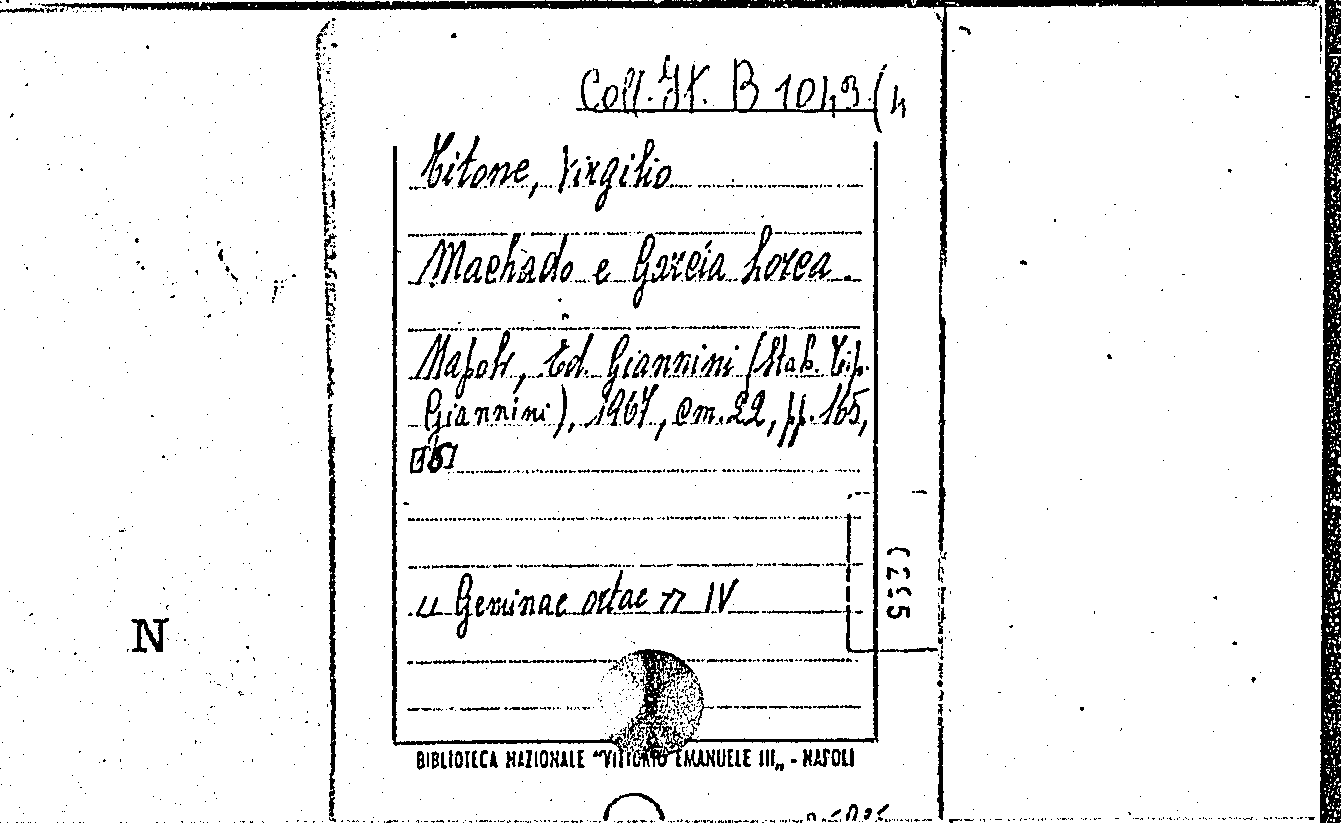 Coll. It. B 1043 (4
Titone, Virgilio
Machado e García Lorca.
Napoli, Ed. Giannini (Stab. Tip.
Giannini), 1967, cm. 22, pp. 165,
« Geminae ortae » IV
N
BIBLIOTECA NAZIONALE "VITTORIO EMANUELE III„ - NAPOLI